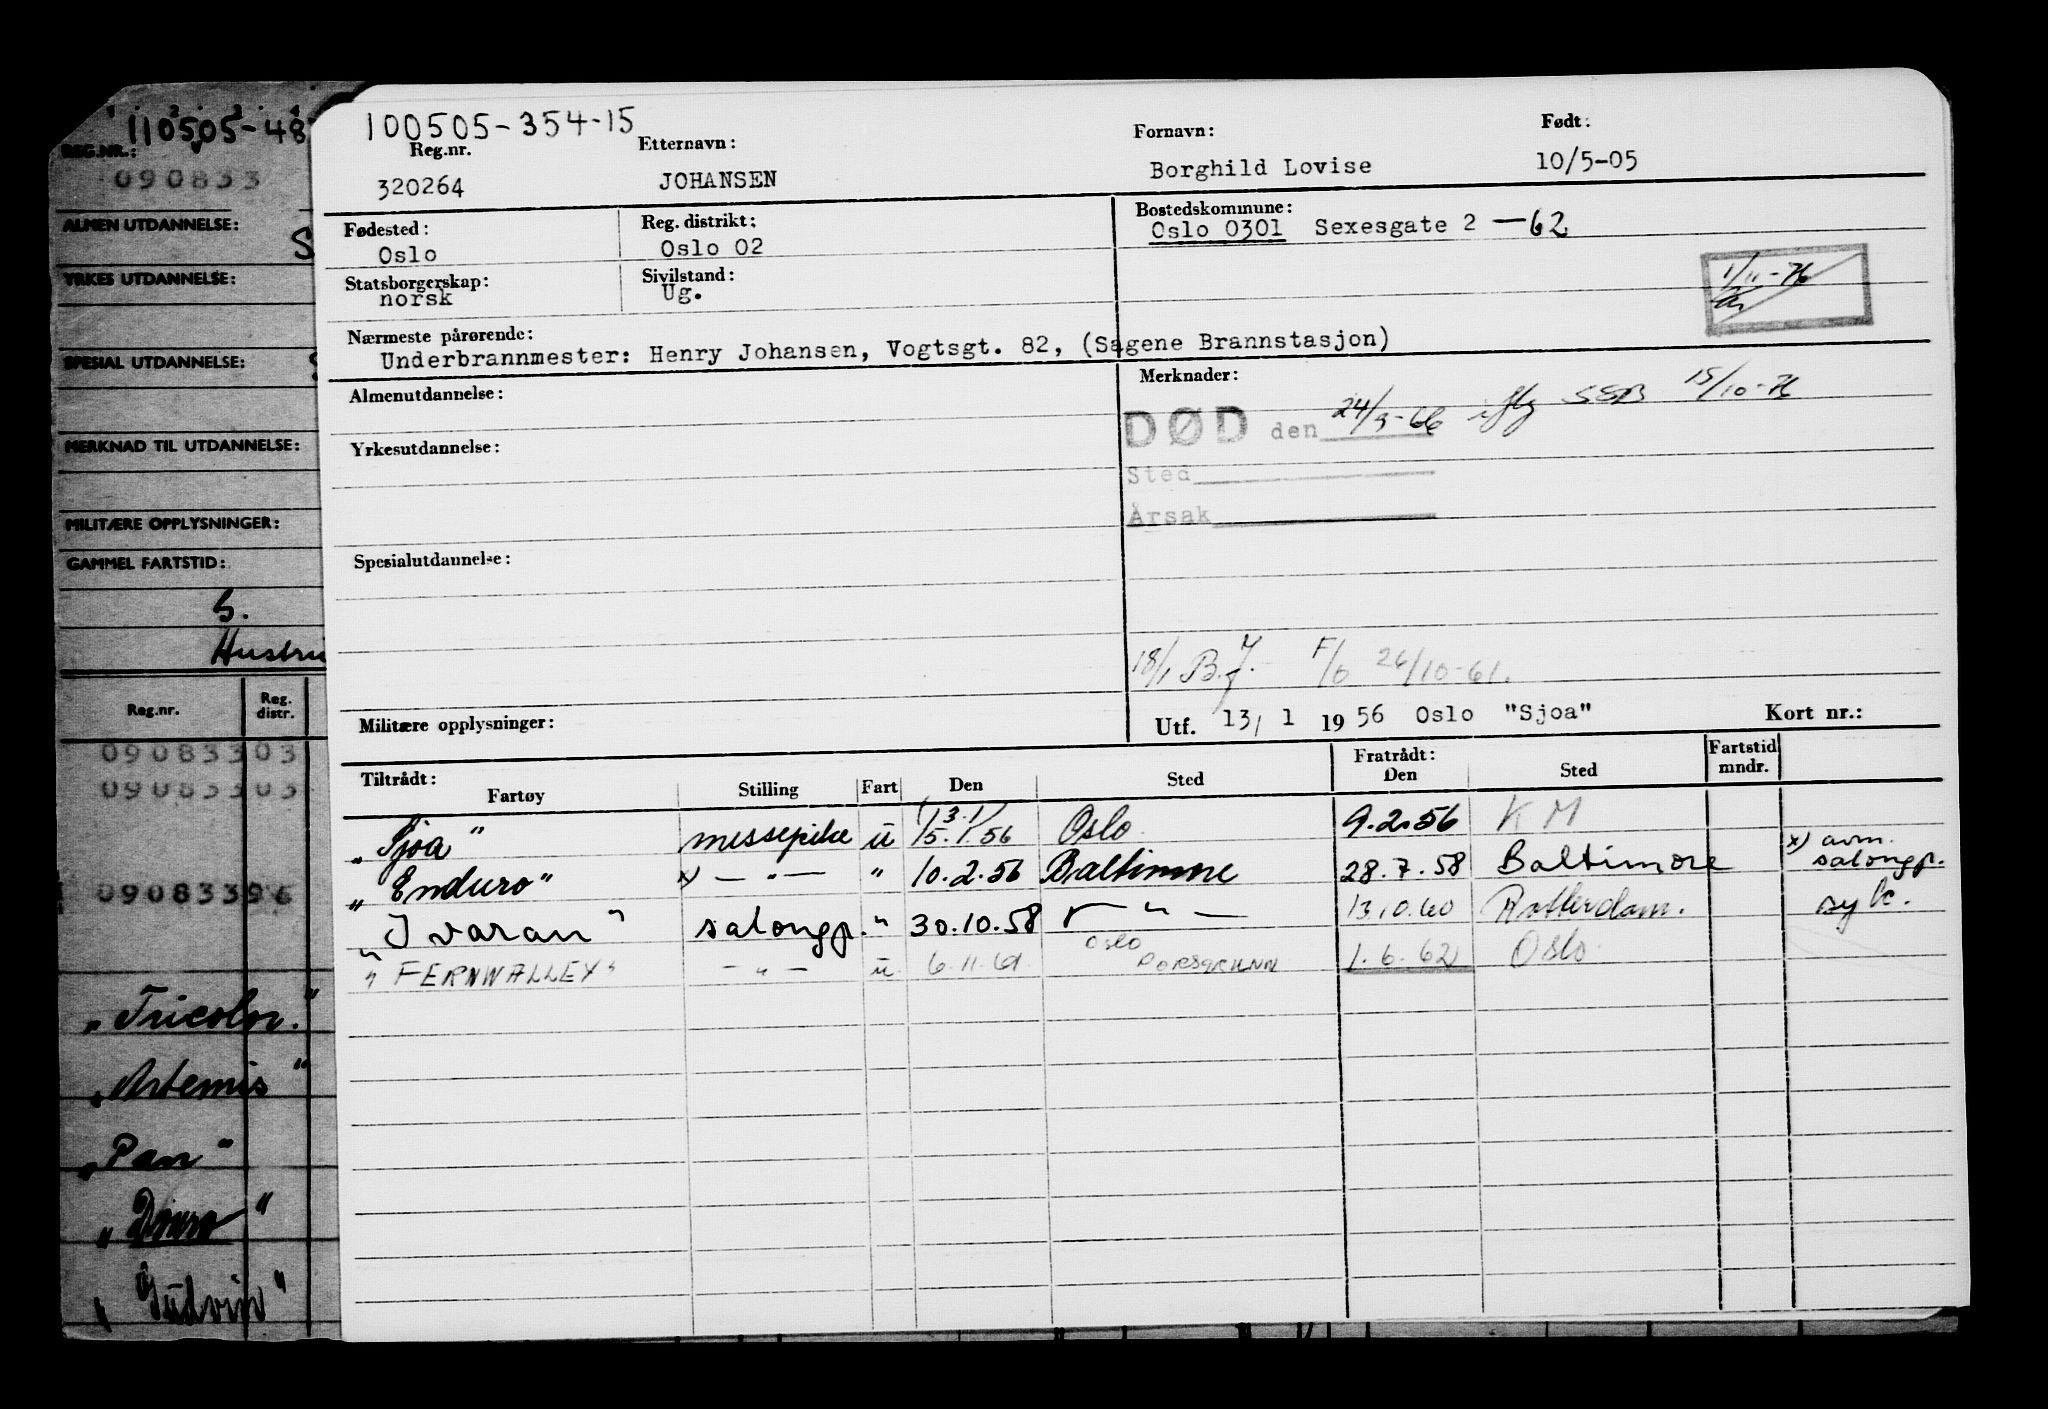 110505-48
REG.NR.:
090833
ALMEN UTDANNELSE:
S
YRKES UTDANNELSE:
SPESIAL UTDANNELSE:
MERKNAD TIL UTDANNELSE:
MILITÆRE OPPLYSNINGER:
GAMMEL FARTSTID:
S.
Hustru
Reg.nr. Reg. distr.
09083303
09083303
09083396
"Tricolor."
"Artemis"
"Pan"
"Gudvin"
100505-354-15
Reg.nr. Etternavn: Fornavn: Født:
320264 JOHANSEN Borghild Lovise 10/5-05
Fødested: Reg. distrikt: Bostedskommune:
Oslo Oslo 02 Oslo 0301 Sexesgate 2 —62
Statsborgerskap: Sivilstand:
norsk Ug.
1/11-76
Nærmeste pårørende:
Underbrannmester: Henry Johansen, Vogtsgt. 82, (Sagene Brannstasjon)
Almenutdannelse: Merknader:
DØD den 24/9-66 iflg SSB 15/10-76
Yrkesutdannelse:
Sted
Årsak
Spesialutdannelse:
18/1 B.J. F/O 26/10-61.
Militære opplysninger: Utf. 13/ 1 1956 Oslo "Sjoa" Kort nr.:
Tiltrådt: Fratrådt: Fartstid mndr.
Fartøy Stilling Fart Den Sted Den Sted
"Sjoa" messepike u 13.1 15.1.56 Oslo 9.2.56 K M
"Enduro" x) — " — " 10.2.56 Baltimore 28.7.58 Baltimore x) avm. salongp.
"Ivaran" salongp. " 30.10.58 — " — 13.10.60 Rotterdam. syk.
"FERNWALLEY" — " — u 6.11.61 Oslo PORSGRUNN 1.6.62 Oslo